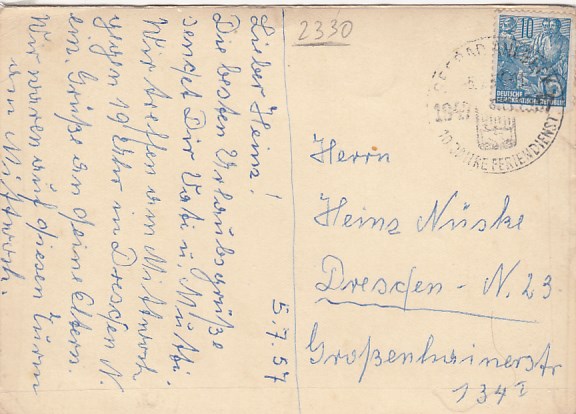 2330
Lieber Heinz!
Die besten Urlaubsgrüße
sendet Dir Vati u. Mutti.
Wir treffen am Mittwoch
gegen 19 Uhr in Dresden N.
ein. Grüße an deine Eltern.
Wir waren auf diesen Turm
am Mittwoch.
5.7.57
10
DEUTSCHE
DEMOKRATISCHE REPUBLIK
SEEBAD
1947
10 JAHRE FERIENDIENST
Herrn
Heinz Nüske
Dresden - N. 23
Großenhainerstr
134 I